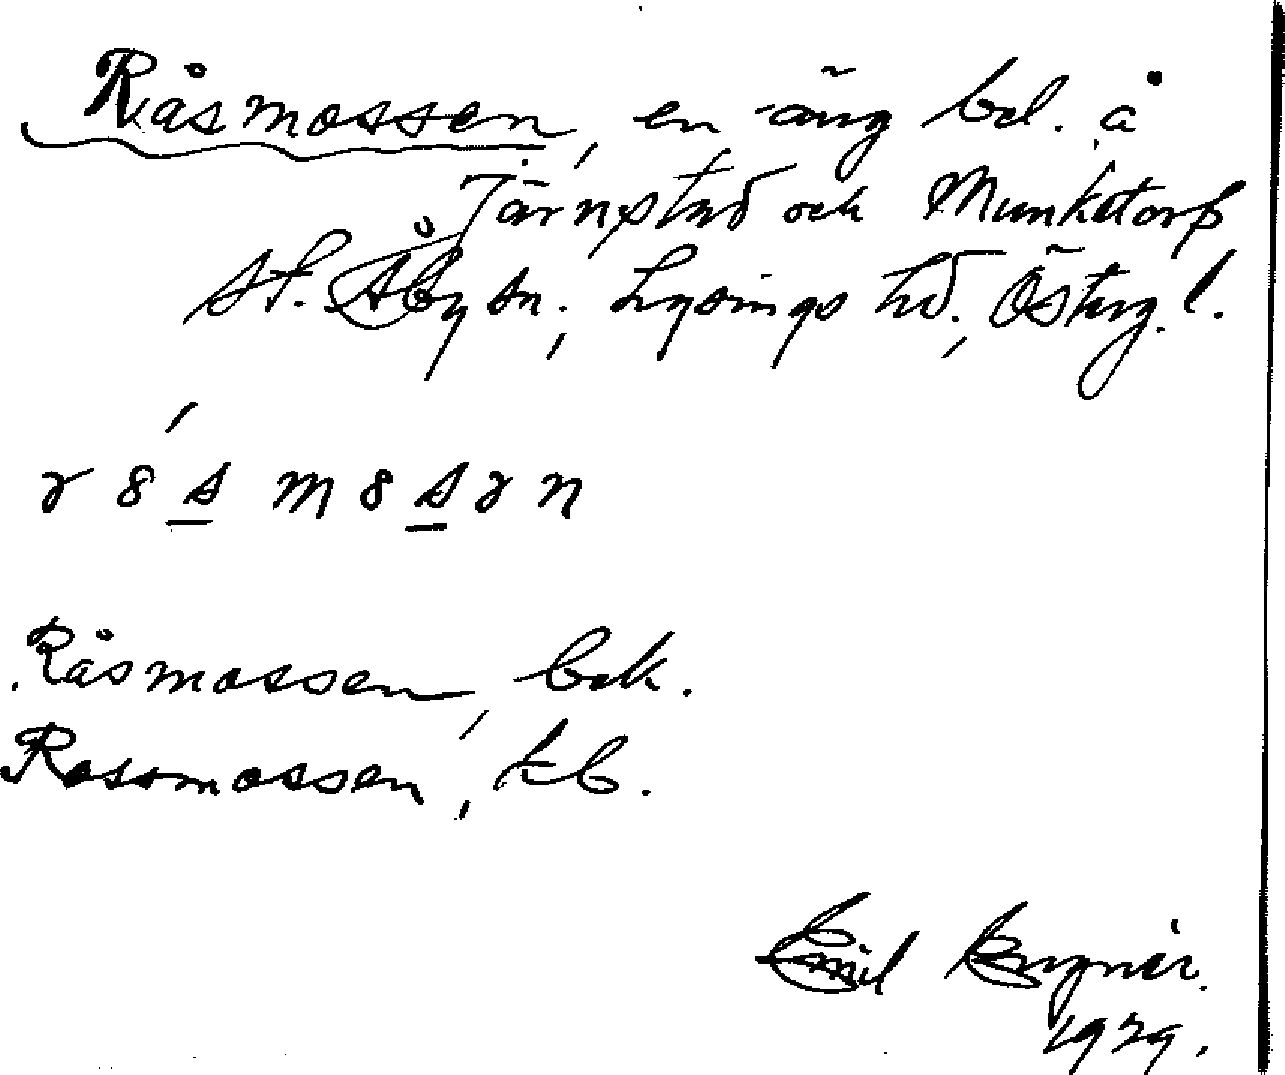 Råsmossen, en äng bel. å
Tärnstad och Munketorp
st. Åby sn., Lysings hd., Österg. l.
r 8 s m 8 s ə n
Råsmossen, bek.
Rossmossen, kb.
Emil
1929.